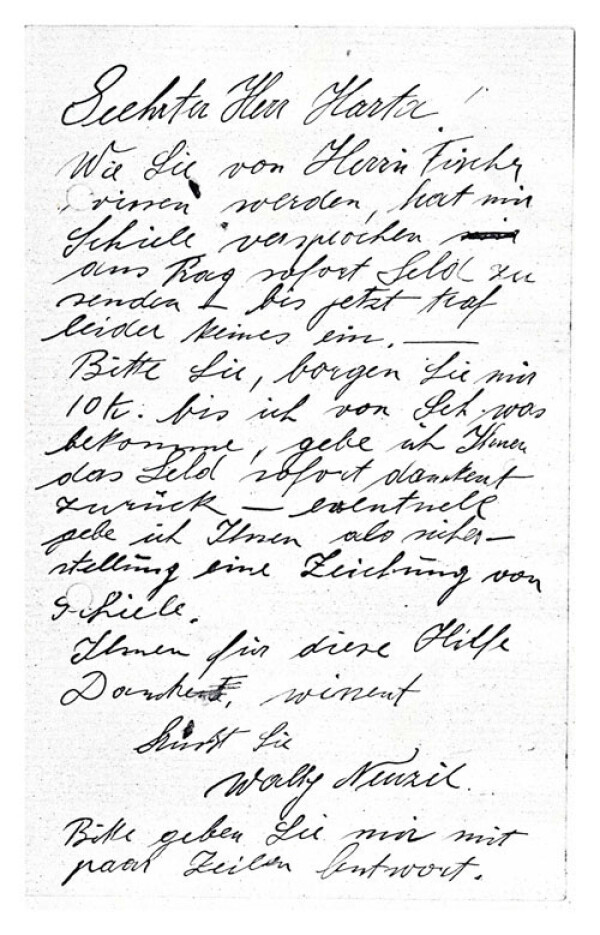 Geehrter Herr Harta!
Wie Sie von Herrn Fischer
wissen werden, hat mir
Schiele versprochen
aus Prag sofort Geld zu
senden – bis jetzt traf
leider keines ein. —
Bitte Sie, borgen Sie mir
10 K. bis ich von Sch. was
bekomme, gebe ich Ihnen
das Geld sofort dankent
zurück — eventuell
gebe ich Ihnen als sicher-
stellung eine Zeichung von
Schiele.
Ihnen für diese Hilfe
Dankent, wissent
Grüsst Sie
Wally Neuzil.
Bitte geben Sie mir mit
paar Zeilen Antwort.